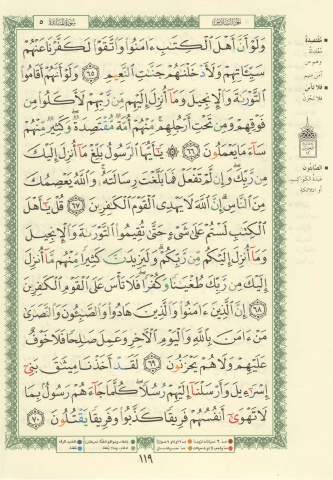 وَلَوْ أَنَّ أَهْلَ ٱلْكِتَٰبِ ءَامَنُوا۟ وَٱتَّقَوْا۟ لَكَفَّرْنَا عَنْهُمْ
سَيِّـَٔاتِهِمْ وَلَأَدْخَلْنَٰهُمْ جَنَّٰتِ ٱلنَّعِيمِ ٦٥ وَلَوْ أَنَّهُمْ أَقَامُوا۟
ٱلتَّوْرَىٰةَ وَٱلْإِنجِيلَ وَمَآ أُنزِلَ إِلَيْهِم مِّن رَّبِّهِمْ لَأَكَلُوا۟ مِن
فَوْقِهِمْ وَمِن تَحْتِ أَرْجُلِهِم ۚ مِّنْهُمْ أُمَّةٌ مُّقْتَصِدَةٌ ۖ وَكَثِيرٌ مِّنْهُمْ
سَآءَ مَا يَعْمَلُونَ ٦٦ ۞ يَٰٓأَيُّهَا ٱلرَّسُولُ بَلِّغْ مَآ أُنزِلَ إِلَيْكَ
مِن رَّبِّكَ ۖ وَإِن لَّمْ تَفْعَلْ فَمَا بَلَّغْتَ رِسَالَتَهُۥ ۚ وَٱللَّهُ يَعْصِمُكَ
مِنَ ٱلنَّاسِ ۗ إِنَّ ٱللَّهَ لَا يَهْدِى ٱلْقَوْمَ ٱلْكَٰفِرِينَ ٦٧ قُلْ يَٰٓأَهْلَ
ٱلْكِتَٰبِ لَسْتُمْ عَلَىٰ شَىْءٍ حَتَّىٰ تُقِيمُوا۟ ٱلتَّوْرَىٰةَ وَٱلْإِنجِيلَ
وَمَآ أُنزِلَ إِلَيْكُم مِّن رَّبِّكُمْ ۗ وَلَيَزِيدَنَّ كَثِيرًا مِّنْهُم مَّآ أُنزِلَ
إِلَيْكَ مِن رَّبِّكَ طُغْيَٰنًا وَكُفْرًا ۖ فَلَا تَأْسَ عَلَى ٱلْقَوْمِ ٱلْكَٰفِرِينَ
٦٨ إِنَّ ٱلَّذِينَ ءَامَنُوا۟ وَٱلَّذِينَ هَادُوا۟ وَٱلصَّٰبِـُٔونَ وَٱلنَّصَٰرَىٰ
مَنْ ءَامَنَ بِٱللَّهِ وَٱلْيَوْمِ ٱلْءَاخِرِ وَعَمِلَ صَٰلِحًا فَلَا خَوْفٌ
عَلَيْهِمْ وَلَا هُمْ يَحْزَنُونَ ٦٩ لَقَدْ أَخَذْنَا مِيثَٰقَ بَنِىٓ
إِسْرَٰٓءِيلَ وَأَرْسَلْنَآ إِلَيْهِمْ رُسُلًا ۖ كُلَّمَا جَآءَهُمْ رَسُولٌۢ بِمَا
لَا تَهْوَىٰٓ أَنفُسُهُمْ فَرِيقًا كَذَّبُوا۟ وَفَرِيقًا يَقْتُلُونَ ٧٠
١١٩
مُقْتَصِدَةٌ
فلا تأس
فلا تحزن
الصابئون